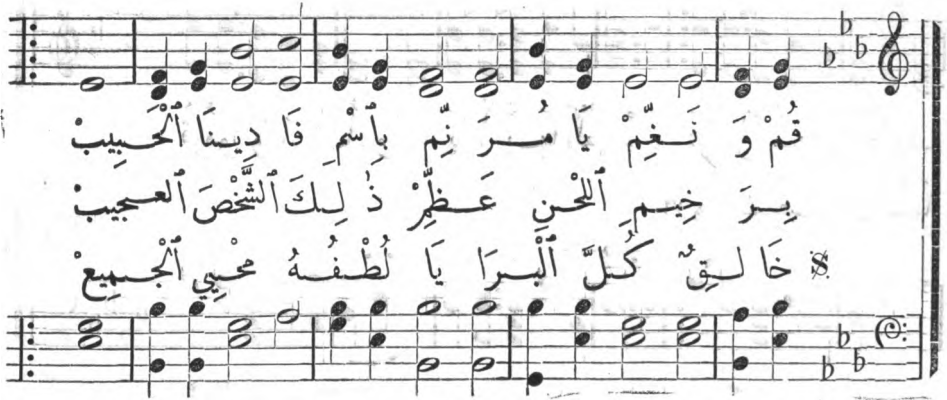 قُمْ وَ نَـغِّمْ يَا مُـرَنِّم بِٱسْمِ فَا دِيـنَا ٱلْحَـبِيبْ
بِـرَ خِيـمِ ٱللَّحْنِ عَـظِّمْ ذٰ لِـكَ ٱلشَّخْصَ ٱلعـجِيبْ
خَا لـقِ كُـلَّ ٱلْبـرَا يَا لُطْـفُـهُ مُحْيِي ٱلْجَـمِيعْ